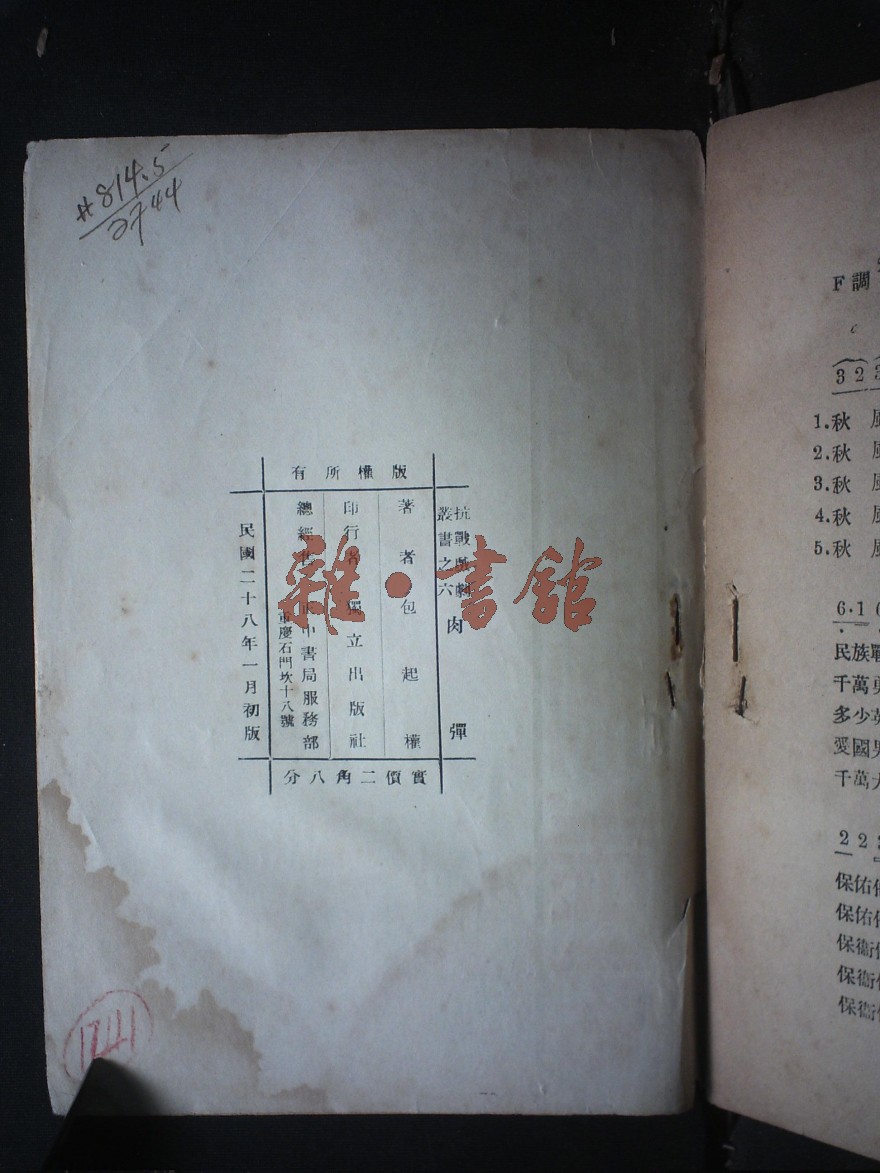 #814.5
2744
版權所有
抗戰戲劇
叢書之六
肉彈
著者包起權
印行者獨立出版社
總經售正中書局服務部
重慶石門坎十八號
民國二十八年一月初版
實價二角八分
雜·書館
1741
F調
3 2 3
1.秋 風
2.秋 風
3.秋 風
4.秋 風
5.秋 風
6·1
民族戰
千萬勇
多少英
愛國男
千萬大
2 2 3
保佑
保佑
保衞
保衞
保衞